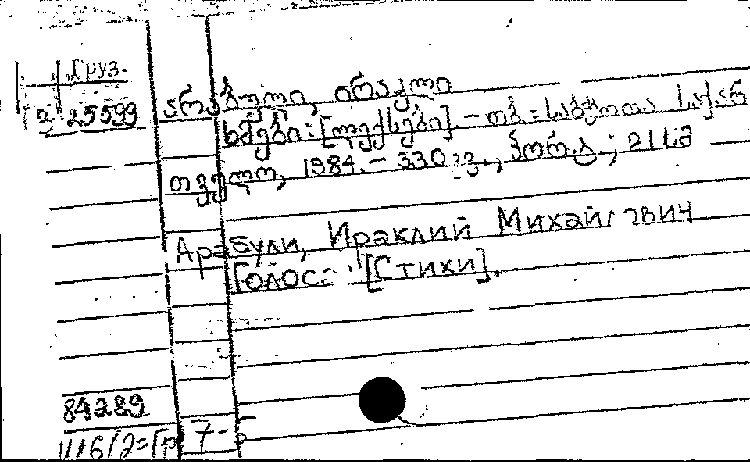 Груз.
25599
არაბული, ირაკლი
ხმები: [ლექსები] – თბ.: საბჭოთა საქარ
თველო, 1984. – 330 გვ., პორტ.; 21 სმ
Арабули, Ираклий Михайлович
Голоса: [Стихи].
84289